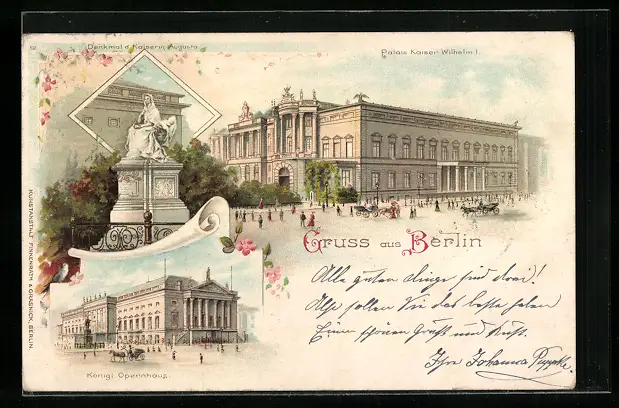 Denkmal d. Kaiserin Augusta
Palais Kaiser Wilhelm I.
Gruss aus Berlin
Alle guten Dinge sind drei!
Also sollen Sie das beste haben
Einen schönen Gruß und Kuß.
Ihre Johanna
Königl. Opernhaus.
KUNSTANSTALT FINKENRATH & GRASNICK, BERLIN.